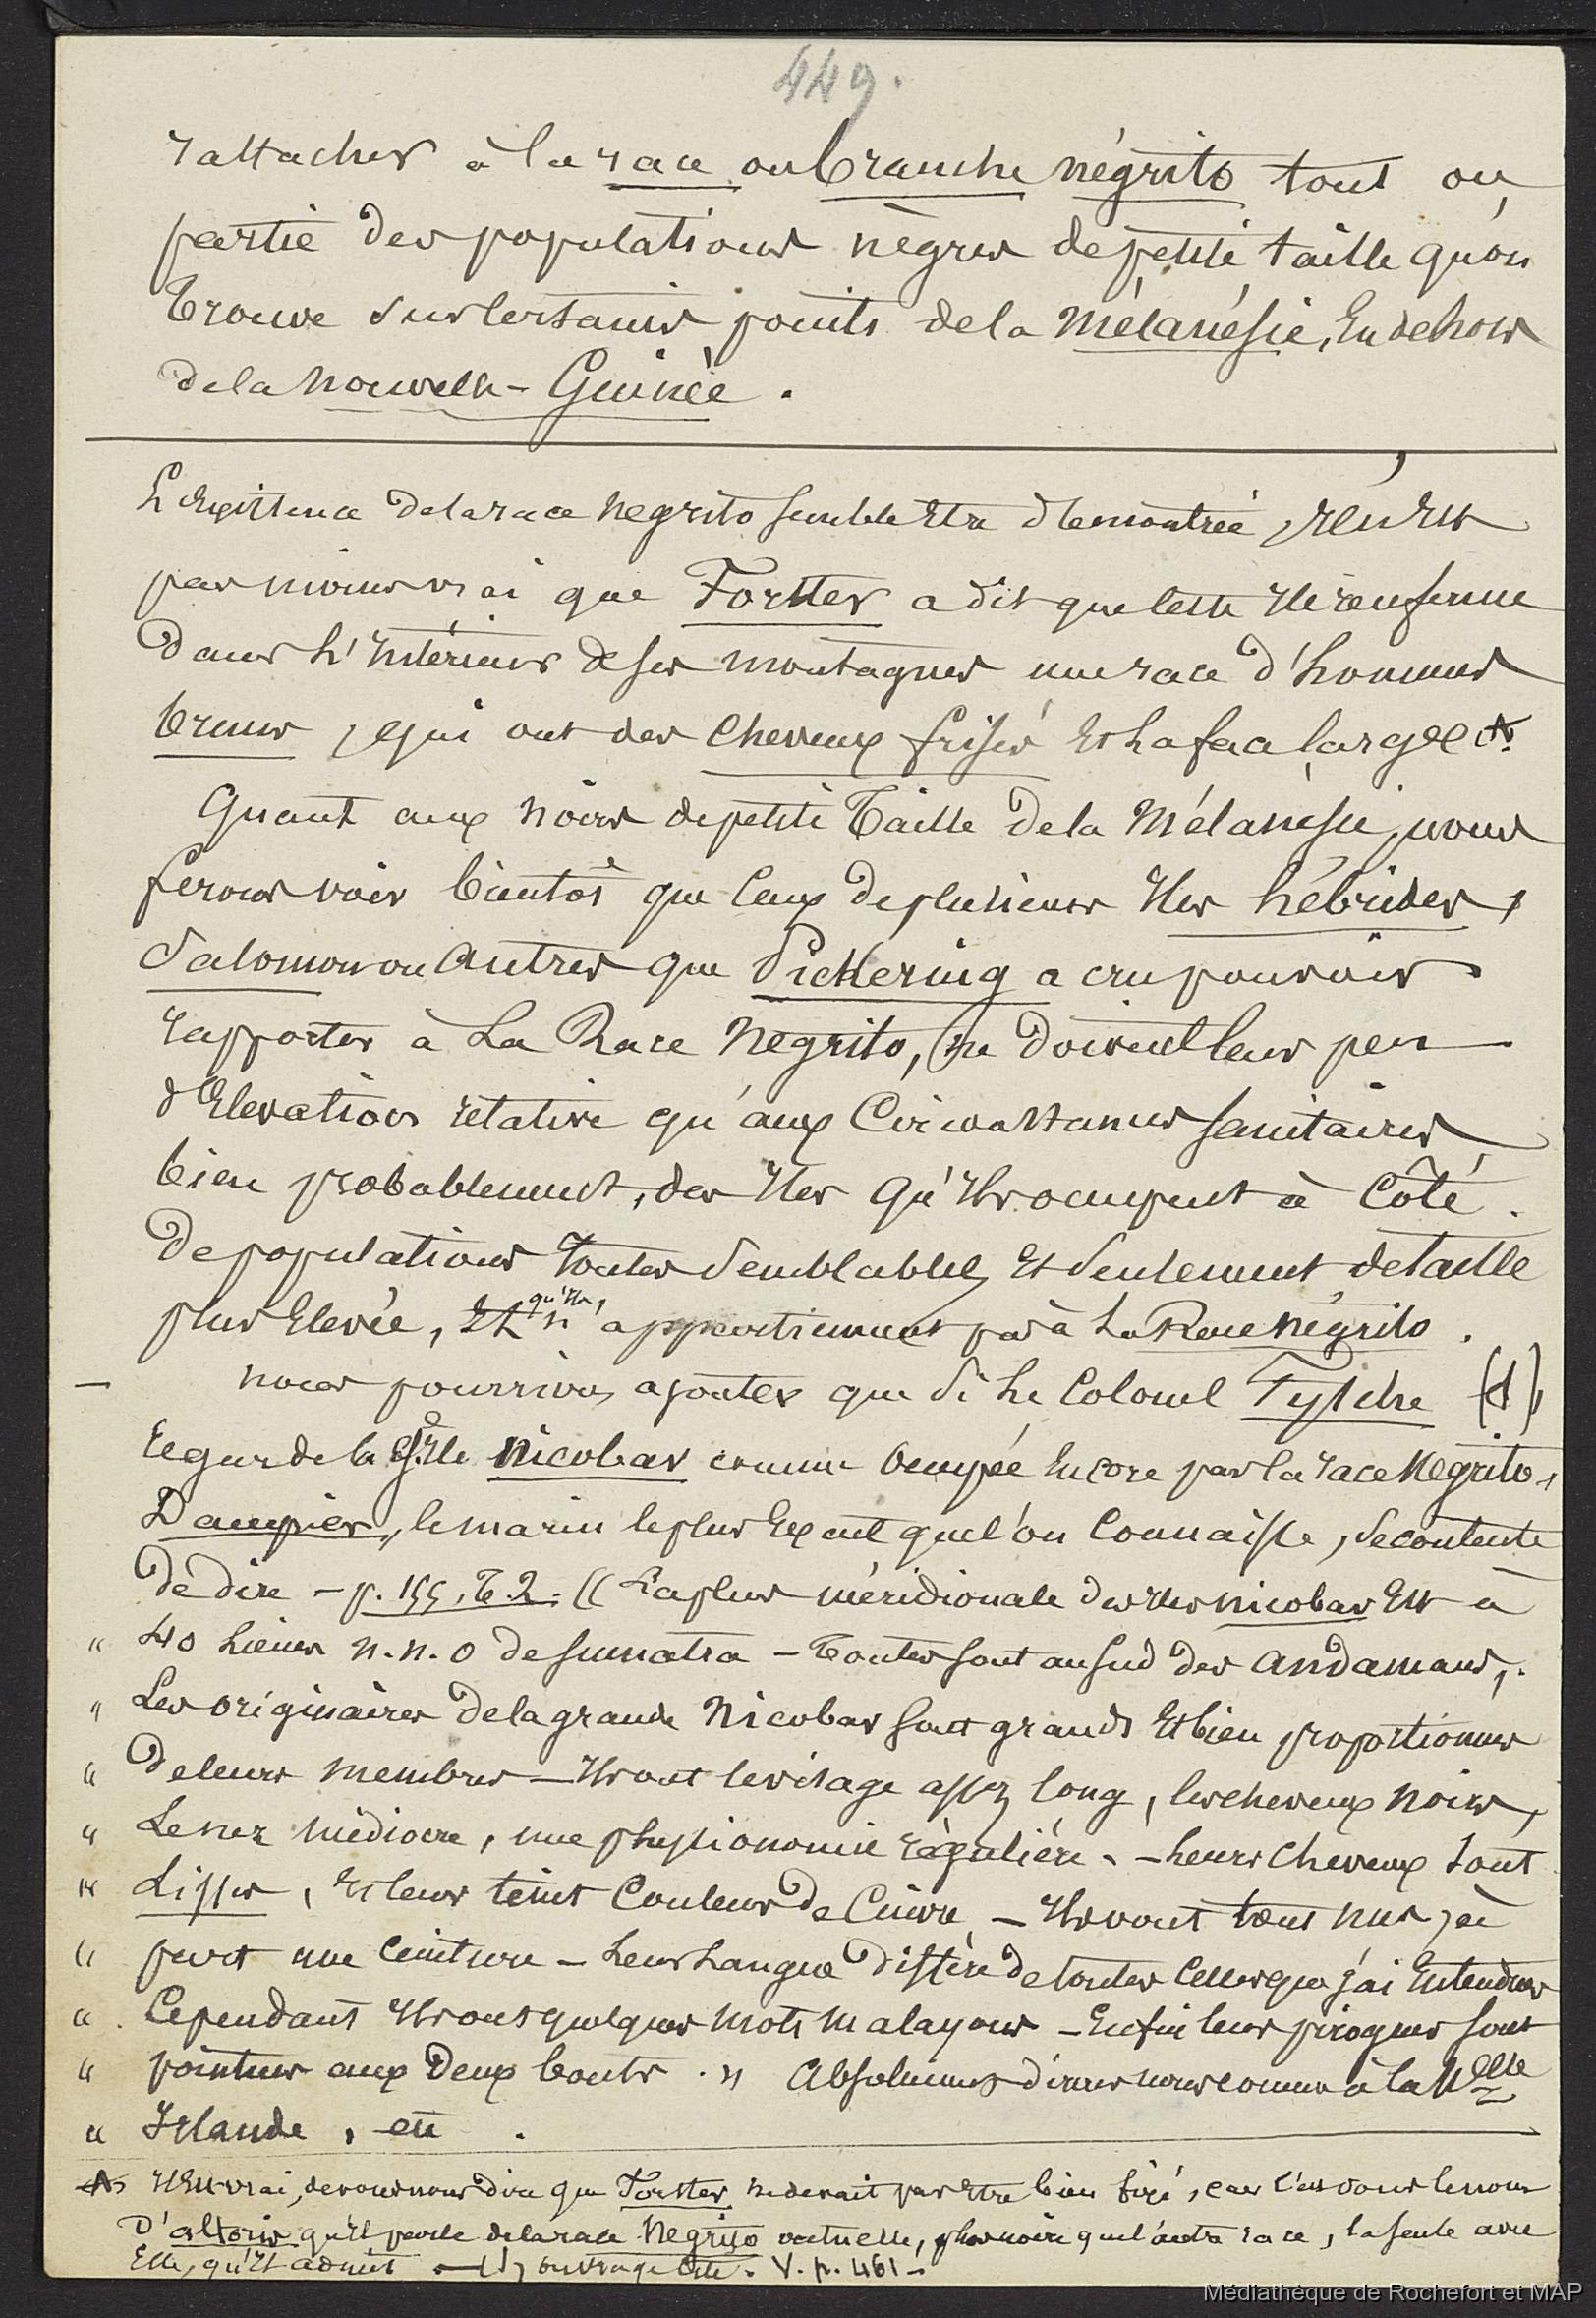 449.
rattacher à la race ou branche négrito tout ou
partie des populations nègres de petite taille qu'on
trouve sur certains points de la Mélanésie, en dehors
de la Nouvelle-Guinée.
L'Existence de la race Negrito semble Etre démontrée, il n'en Est
pas moins vrai que Forster a dit que cette Ile renferme
dans l'Intérieur de ses montagnes une race d'hommes
bruns, qui ont des cheveux frisés Et la face large A.
Quant aux noirs de petite Taille de la Mélanésie, nous
ferons voir bientôt que ceux de plusieurs Iles hébrides,
Salomon ou Autres que Pickering a cru pouvoir
rapporter à La Race Negrito, ne doivent leur peu
d'Elevation relative qu'aux Circonstances sanitaires,
bien probablement, des Iles qu'Ils occupent à Côté
de populations toutes Semblables, Et Seulement de taille
plus Elevée, Et qu'Ils, n'appartiennent pas à La Race négrito.
— nous pourrions ajouter que Si le Colonel Fytche (1),
regarde la Gde Ile Nicobar comme occupée Encore par la race Negrito,
Dampier, le marin le plus Exact que l'on Connaisse, Se contente
de dire – p. 155, T. 2. (( La plus méridionale des Iles nicobar Est à
" 40 Lieues N.N.O de Sumatra – Toutes sont au Sud des Andamans,.
" Les originaires de la grande Nicobar sont grands Et bien proportionnés
" de leurs membres – Ils ont le visage assez long, les cheveux noirs,
" Le nez médiocre, une physionomie régulière. – Leurs Cheveux Sont
" Lisses, Et leur teint Couleur de Cuivre – Ils vont tous nus, à
" part une Ceinture – Leur Langue diffère de toutes Celles que j'ai Entendues
" Cependant Ils ont quelques mots malayous – Enfin leurs pirogues sont
" pointues aux Deux bouts. " Absolument dirons nous comme à la Nelle
" Irlande, etc.
A Il Est vrai, devons nous dire que Forster ne devait pas Etre bien fixé, car c'est sous le nom
D'alforis qu'Il parle de la race Negrito actuelle, plus noire que l'autre race, la seule avec
Elle, qu'Il admet — (1) ouvrage Cité. V. p. 461 –
Médiathèque de Rochefort et MAP